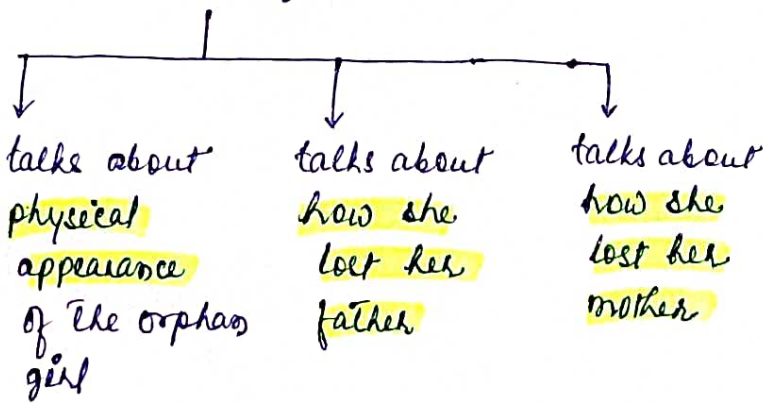 talks about
physical
appearance
of the orphan
girl
talks about
how she
lost her
father
talks about
how she
lost her
mother